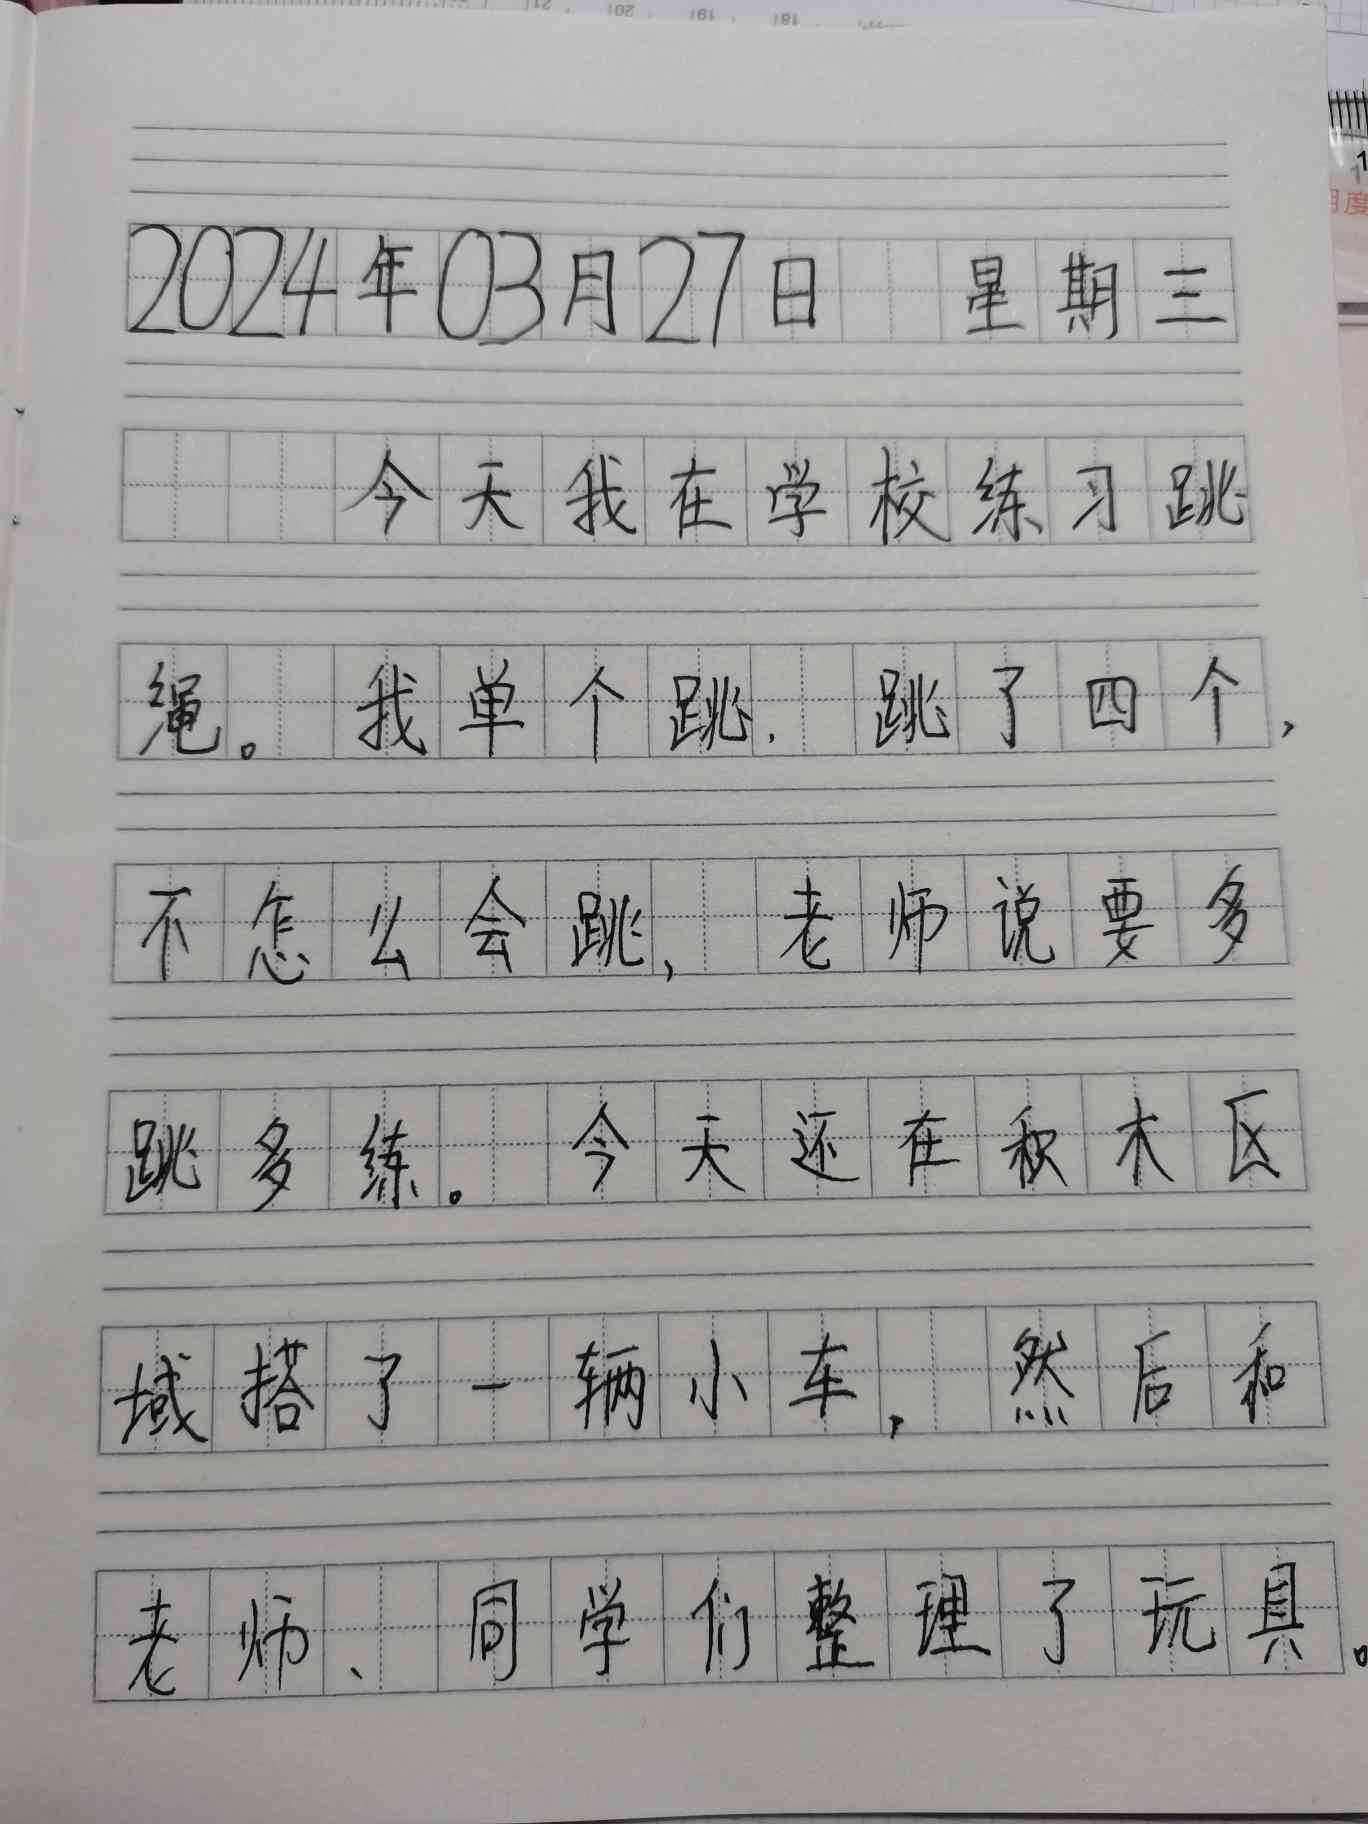 2024年03月27日 星期三
今天我在学校练习跳
绳。我单个跳，跳了四个，
不怎么会跳，老师说要多
跳多练。今天还在积木区
域搭了一辆小车，然后和
老师、同学们整理了玩具。